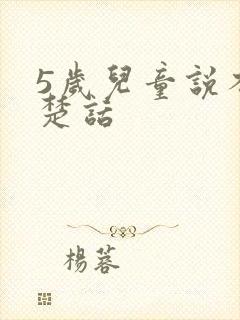 5歲兒童說不
楚話
楊蓉